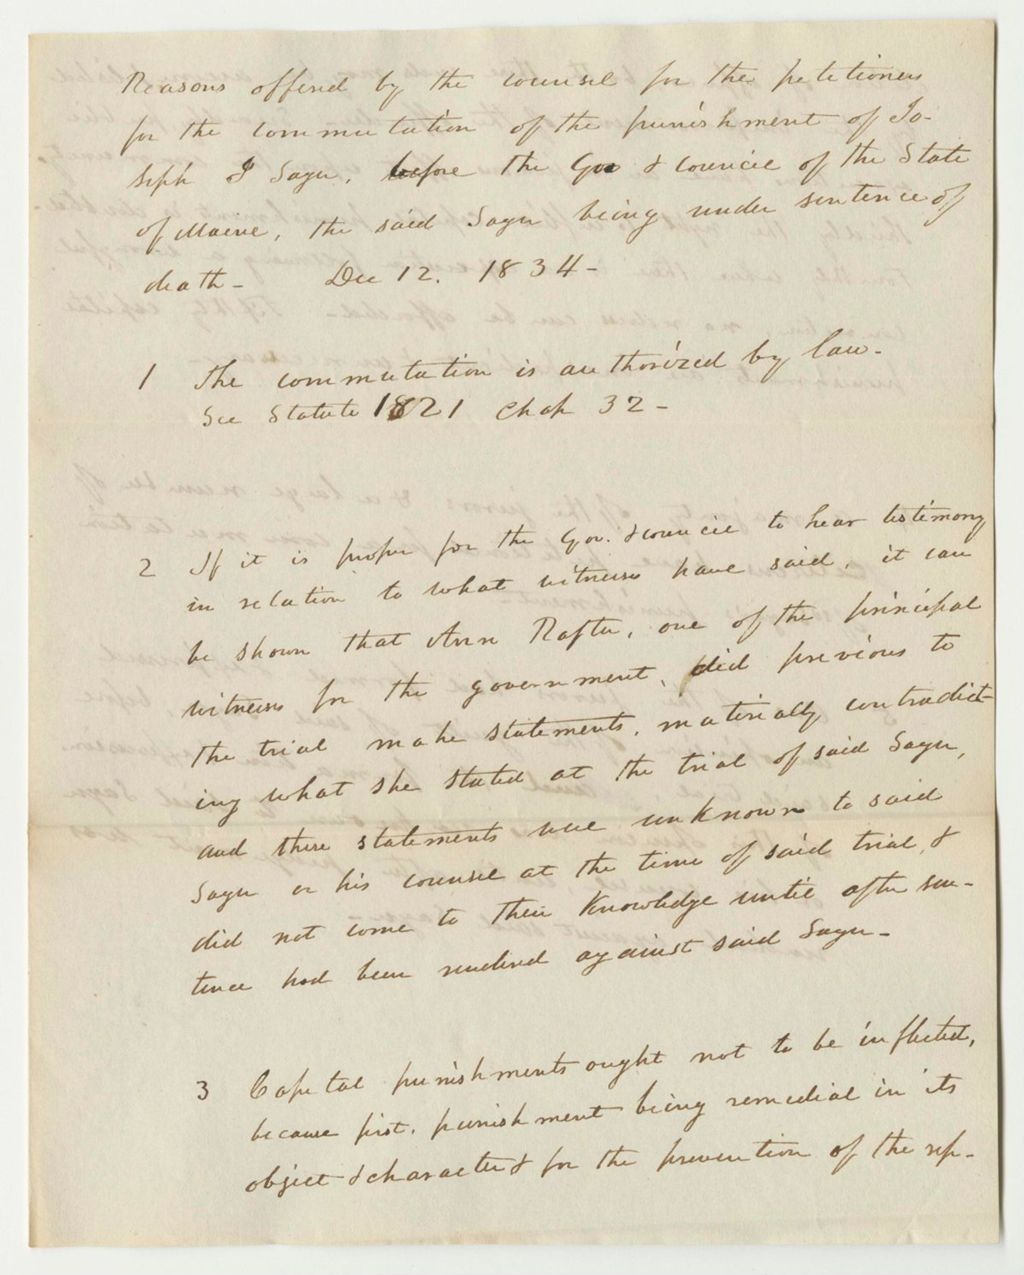 Reasons offered by the counsel for the petitioners
for the commutation of the punishment of Jo-
seph J Sager, before the Gov & council of the State
of Maine, the said Sager being under sentence of
death - Dec 12. 1834 -
1 The commutation is authorized by law -
See Statute 1821 Chap 32 -
2 If it is proper for the Gov. & council to hear testimony
in relation to what witnesses have said, it can
be shown that Ann Rafter, one of the principal
witnesses for the government, did previous to
the trial make statements, materially contradict-
ing what she stated at the trial of said Sager,
and these statements were unknown to said
Sager or his counsel at the time of said trial, &
did not come to their knowledge until after sen-
tence had been rendered against said Sager -
3 Capital punishments ought not to be inflicted,
because first, punishment being remedial in its
object & character & for the prevention of the rep-